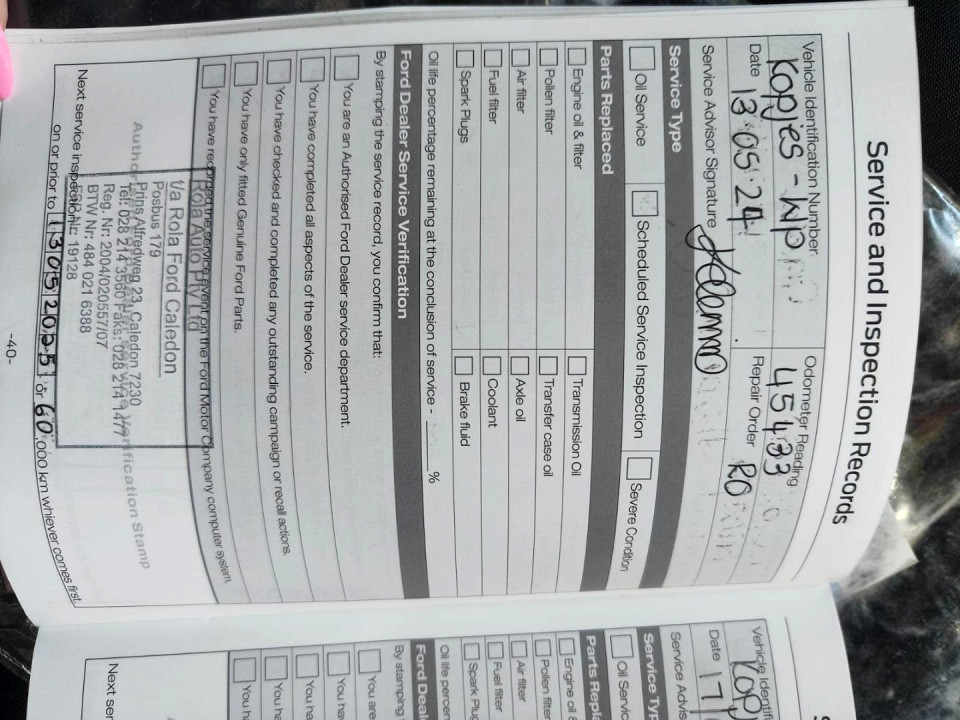 Service and Inspection Records
Vehicle Identification Number
Kopjes - Wp
Odometer Reading
45433
Date 13.05.24
Repair Order RO
Service Advisor Signature
Service Type
Oil Service
Scheduled Service Inspection
Severe Condition
Parts Replaced
Engine oil & filter
Transmission Oil
Pollen filter
Transfer case oil
Air filter
Axle oil
Fuel filter
Coolant
Spark Plugs
Brake fluid
Oil life percentage remaining at the conclusion of service - %
Ford Dealer Service Verification
By stamping the service record, you confirm that:
You are an Authorised Ford Dealer service department.
You have completed all aspects of the service.
You have checked and completed any outstanding campaign or recall actions.
You have only fitted Genuine Ford Parts.
You have recorded the service event on the Ford Motor Company computer system.
Rola Auto Pty Ltd
t/a Rola Ford Caledon
Posbus 179
Prins Alfredweg 23, Caledon 7230
Tel: 028 214 3560 Faks: 028 214 1477
Reg. Nr: 2004/020557/07
BTW Nr: 484 021 6388
19128
Verification Stamp
Next service inspection:
on or prior to 13052025 or 60,000 km whiever comes first.
-40-
Vehicle Identif
Kopj
Date 17
Service Advis
Service Typ
Oil Servic
Parts Repla
Engine oil &
Pollen filter
Air filter
Fuel filter
Spark Plug
Oil life percen
Ford Deal
By stamping
You are
You hav
You ha
You ha
You h
Next ser